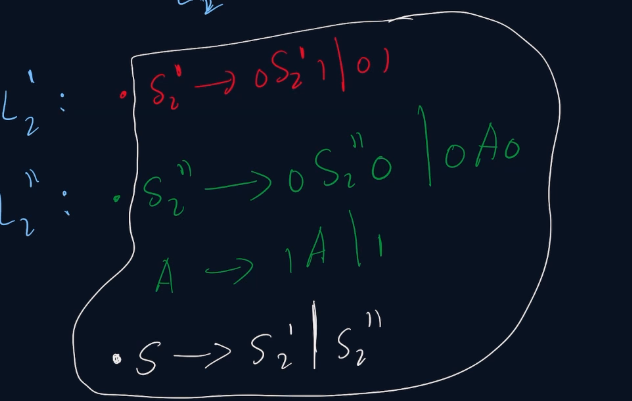 L₂' : • S₂' → 0S₂'1 | 01
L₂'' : • S₂'' → 0S₂''0 | 0A0
A → 1A | 1
• S → S₂' | S₂''